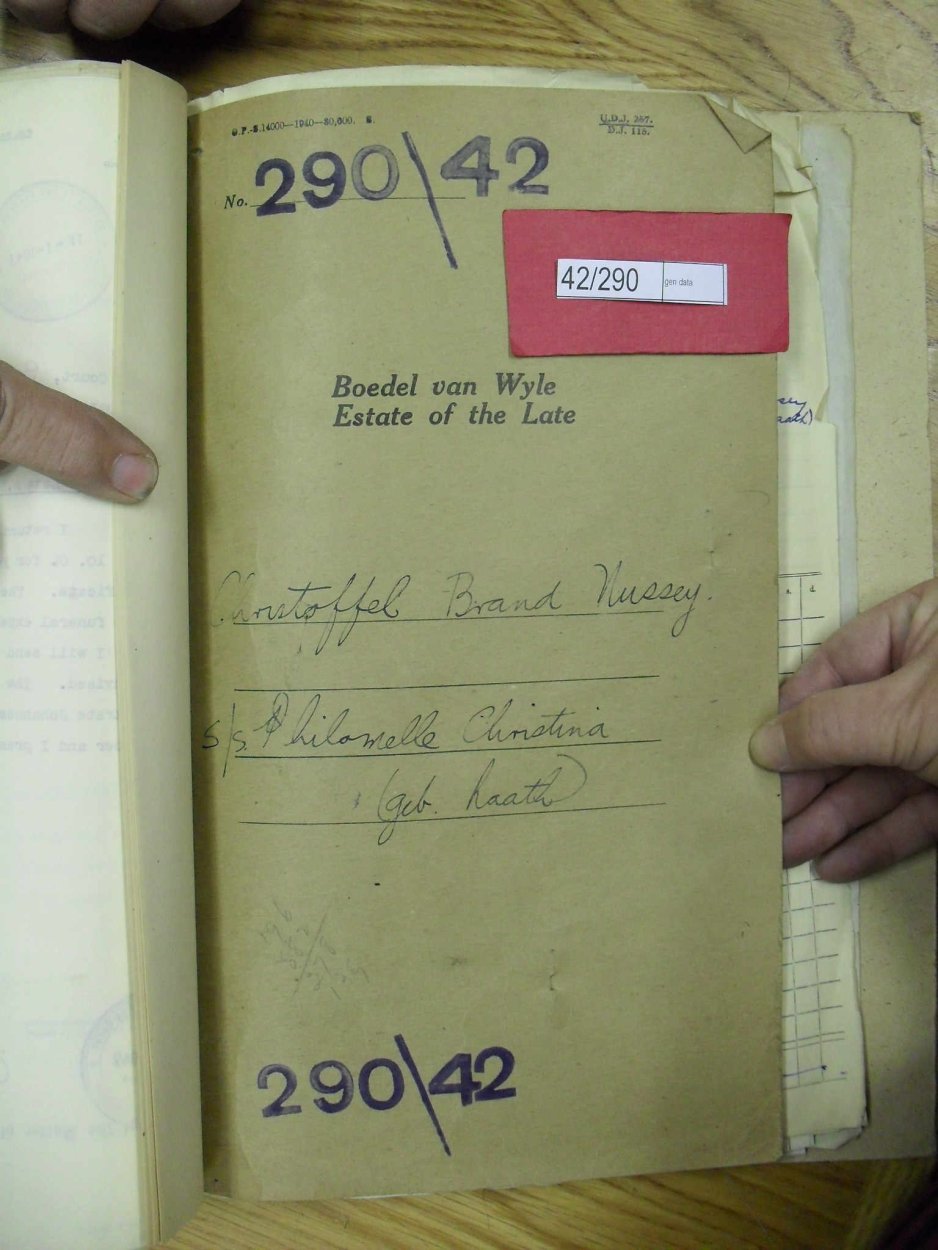 G.P.-S.14000—1940—30,000. S.
U.D.J. 257.
D.J. 118.
No. 290\42
42/290 gen data
Boedel van Wyle
Estate of the Late
Christoffel Brand Nussey.
s/s. Philomelle Christina
(geb. Raath)
290\42